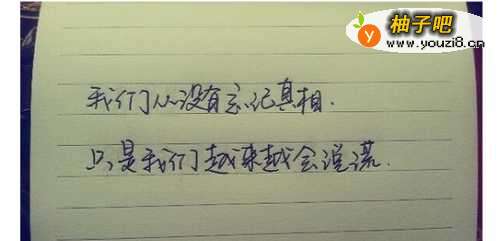 柚子吧
www.youzi8.cn
我们从没有忘记真相.
只是我们越来越会说谎.